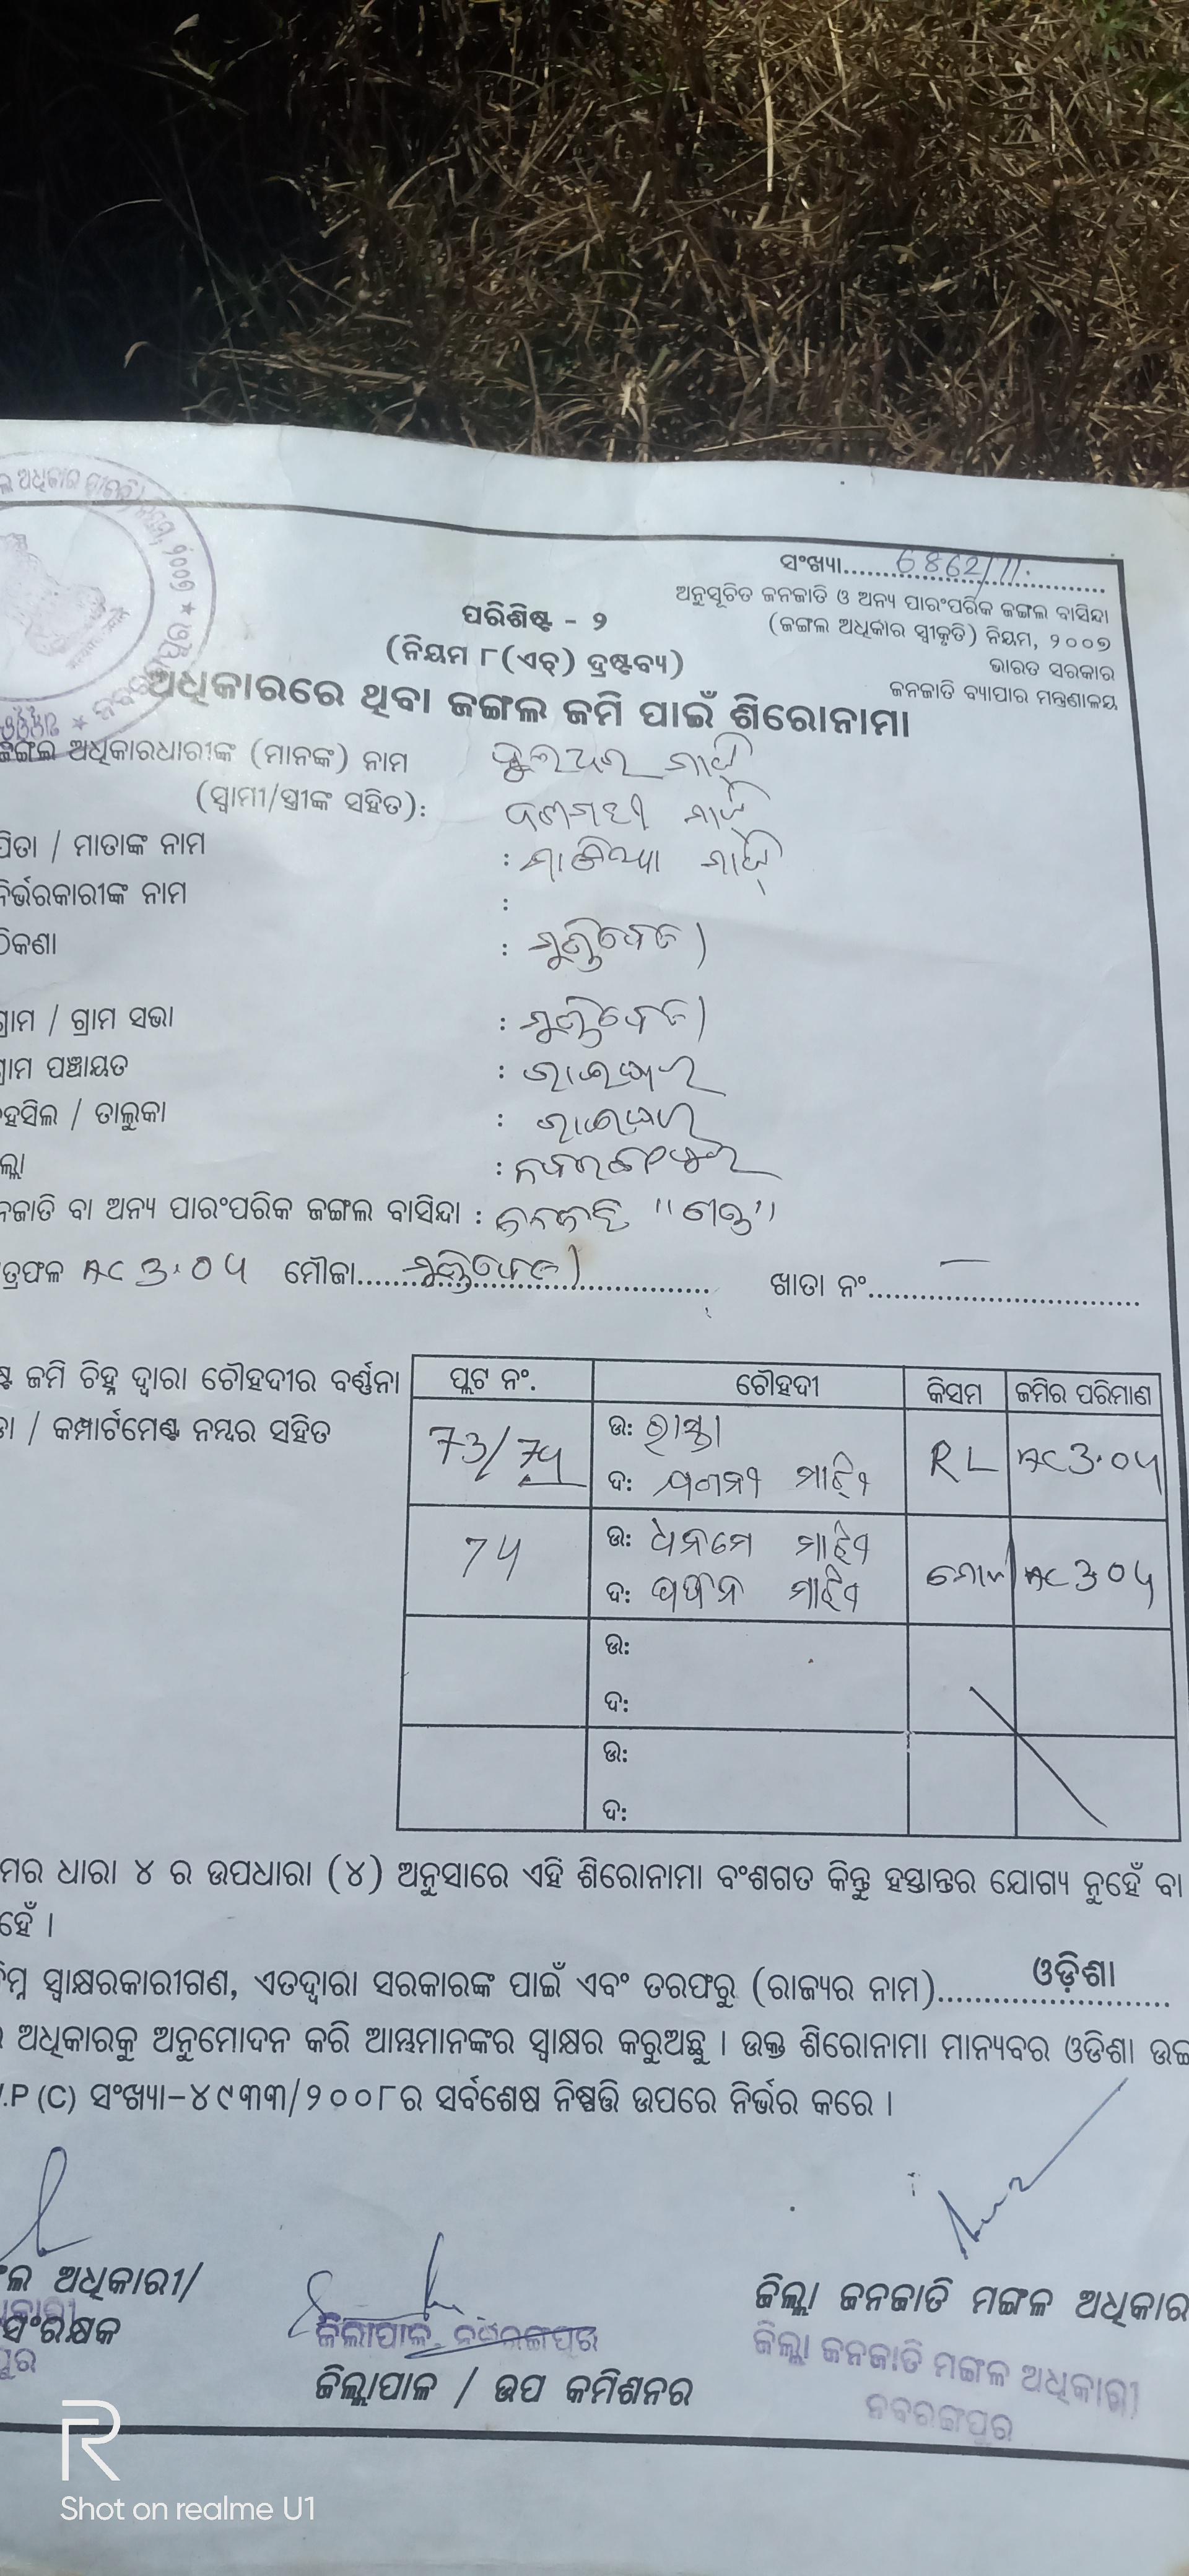 ସଂଖ୍ୟା.......6862/11.
ଅନୁସୂଚିତ ଜନଜାତି ଓ ଅନ୍ୟ ପାରଂପରିକ ଜଙ୍ଗଲ ବାସିନ୍ଦା
(ଜଙ୍ଗଲ ଅଧିକାର ସ୍ୱୀକୃତି) ନିୟମ, ୨୦୦୭
ଭାରତ ସରକାର
ଜନଜାତି ବ୍ୟାପାର ମନ୍ତ୍ରଣାଳୟ
ପରିଶିଷ୍ଟ - ୨
(ନିୟମ ୮(ଏଚ୍) ଦ୍ରଷ୍ଟବ୍ୟ)
ଅଧିକାରରେ ଥିବା ଜଙ୍ଗଲ ଜମି ପାଇଁ ଶିରୋନାମା
ଜଙ୍ଗଲ ଅଧିକାରଧାରୀଙ୍କ (ମାନଙ୍କ) ନାମ
(ସ୍ୱାମୀ/ସ୍ତ୍ରୀଙ୍କ ସହିତ):
ପିତା / ମାତାଙ୍କ ନାମ :
ନିର୍ଭରକାରୀଙ୍କ ନାମ :
ଠିକଣା :
ଗ୍ରାମ / ଗ୍ରାମ ସଭା :
ଗ୍ରାମ ପଞ୍ଚାୟତ : ରାଇଘର
ହସିଲ / ତାଲୁକା : ରାଇଘର
ଲ୍ଲା : ନବରଙ୍ଗପୁର
ନଜାତି ବା ଅନ୍ୟ ପାରଂପରିକ ଜଙ୍ଗଲ ବାସିନ୍ଦା : ଜନଜାତି "ଗଣ୍ଡ"
ତ୍ରଫଳ AC 3.04 ମୌଜା....... ଖାତା ନଂ.......
ଷ୍ଟ ଜମି ଚିହ୍ନ ଦ୍ୱାରା ଚୌହଦୀର ବର୍ଣ୍ଣନା
/ କମ୍ପାର୍ଟମେଣ୍ଟ ନମ୍ବର ସହିତ
ପ୍ଲଟ ନଂ. ଚୌହଦୀ କିସମ ଜମିର ପରିମାଣ
73/74 ଉ: ରାସ୍ତା RL AC 3.04
ଦ: ମାଝି
74 ଉ: ମାଝି AC 3.04
ଦ: ମାଝି
ଉ:
ଦ:
ଉ:
ଦ:
ମର ଧାରା ୪ ର ଉପଧାରା (୪) ଅନୁସାରେ ଏହି ଶିରୋନାମା ବଂଶଗତ କିନ୍ତୁ ହସ୍ତାନ୍ତର ଯୋଗ୍ୟ ନୁହେଁ ବା
ହେଁ ।
ନିମ୍ନ ସ୍ୱାକ୍ଷରକାରୀଗଣ, ଏତଦ୍ୱାରା ସରକାରଙ୍କ ପାଇଁ ଏବଂ ତରଫରୁ (ରାଜ୍ୟର ନାମ).......ଓଡ଼ିଶା
ଅଧିକାରକୁ ଅନୁମୋଦନ କରି ଆମ୍ଭମାନଙ୍କର ସ୍ୱାକ୍ଷର କରୁଅଛୁ । ଉକ୍ତ ଶିରୋନାମା ମାନ୍ୟବର ଓଡିଶା ଉଚ୍ଚ
.P (C) ସଂଖ୍ୟା-୪୯୩୩/୨୦୦୮ର ସର୍ବଶେଷ ନିଷ୍ପତ୍ତି ଉପରେ ନିର୍ଭର କରେ ।
ଅଧିକାରୀ/
ସଂରକ୍ଷକ
ଜିଲ୍ଲାପାଳ, ନବରଙ୍ଗପୁର
ଜିଲ୍ଲାପାଳ / ଉପ କମିଶନର
ଜିଲ୍ଲା ଜନଜାତି ମଙ୍ଗଳ ଅଧିକାର
ଜିଲ୍ଲା ଜନଜାତି ମଙ୍ଗଳ ଅଧିକାରୀ
ନବରଙ୍ଗପୁର
Shot on realme U1